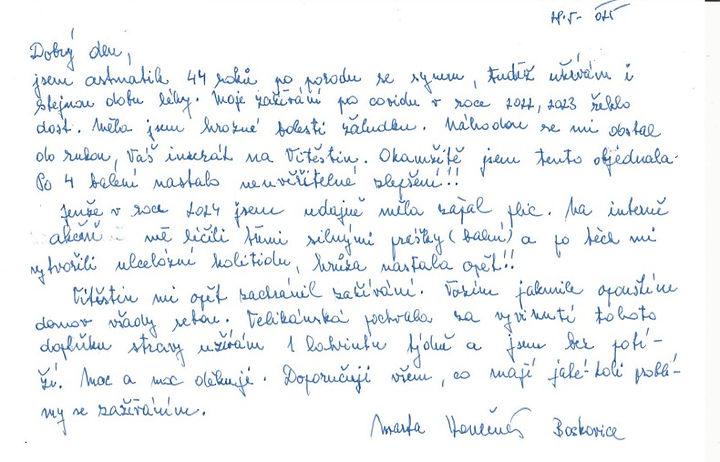 Dobrý den,
jsem astmatik 44 roků po porodu se synem, tudíž užívám i
stejnou dobu léky. Moje zažívání po covidu v roce 2022, 2023 řeklo
dost. Měla jsem hrozné bolesti žaludku. Náhodou se mi dostal
do rukou, Váš inzerát na Vitěštin. Okamžitě jsem tento objednala.
Po 4 balení nastalo neuvěřitelné zlepšení!!
Jenže v roce 2024 jsem údajně měla zápal plic. Na interně
mě léčili třemi silnými prášky (balení) a po těch mi
vytvořili ulcelózní kolitidu, hrůza nastala opět!!
Vitěštin mi opět zachránil zažívání. Vozím jakmile opouštím
domov všady sebou. Velikánská pochvala za vyvinutí tohoto
doplňku stravy užívám 1 lahvinku týdně a jsem bez potí-
ží. Moc a moc děkuji. Doporučuji všem, co mají jaké-koli problé-
my se zažíváním.
Marta Boskovice